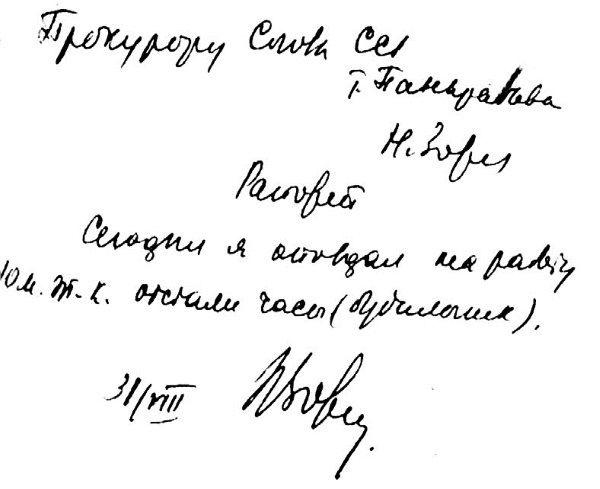 Прокурору Следств ССР
т. Панкратьева
Н. Зоря
Рапорт
Сегодня я опоздал на работу
10 м. т.к. отстали часы (будильник).
31/VIII НЗоря.